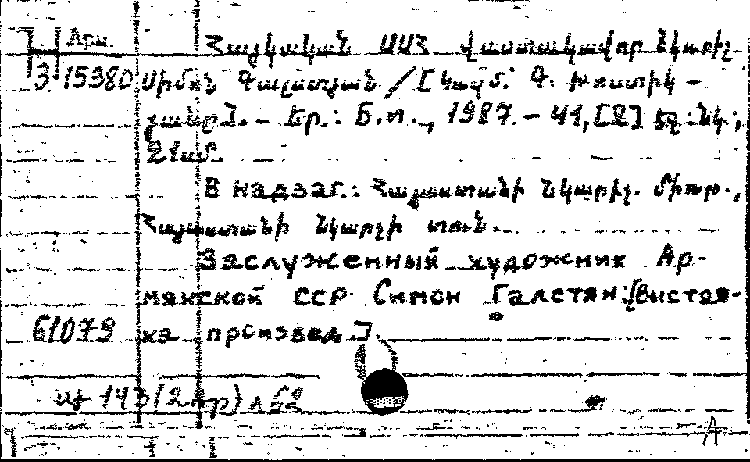 Арм.
Հայկական ՍՍՀ վաստակավոր նկարիչ
3-15380 Սիմոն Գալստյան / [Կազմ.՝ Գ. Խոստիկ-
յանը]. - Եր.: Б.и., 1987. - 41, [2] էջ: նկ.;
21սմ.
В надзаг.: Հայաստանի նկարիչ. միութ.,
Հայաստանի նկարչի տուն.
Заслуженный художник Ар-
мянской ССР Симон Галстян: [Выстав-
61079 ка произвед.].
143 (2 кр) л 62
А